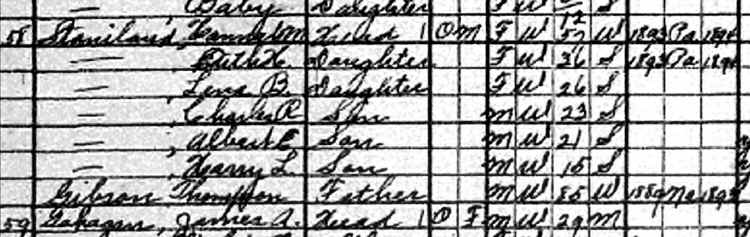 Baby Daughter F W /12 S
58 Staniland, M. Head 1 O M F W 57 W 1893 Pa 189
— , Edith H. Daughter F W 36 S 1893 Pa 189
— , Lena B. Daughter F W 26 S
— , Charles R Son M W 23 S
— , Albert E. Son M W 21 S
— , Harry L. Son M W 15 S
Gibson Thompson Father M W 85 W 1889 Na 189
59 Gahagan, James A. Head 1 O F M W 29 M